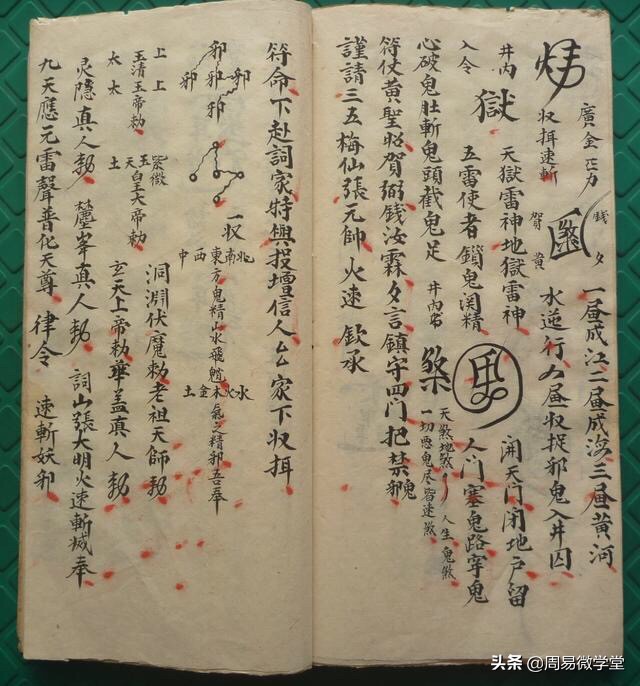 廣金正力
收捐速斬
錢夕
賀黃
一昼成江二昼成海三昼黃河
水逆行 昼收捉邪鬼入井囚
井內
獄
天獄雷神地獄雷神
開天門閉地戶留
入令
五雷使者鎖鬼関精
人門塞鬼路穿鬼
心破鬼肚斬鬼頭截鬼足
井內書
煞
天煞地煞
人生鬼煞
一切惡鬼尽皆速煞
符仗黃聖昭賀弼錢汝霖夕言鎮守四門把禁邪鬼
謹請三五梅仙張元帥火速欽承
符命下赴詞家特與投壇信人厶家下收捐
邪
邪邪邪
邪
一収
北
東方
南
西
中
鬼精山水飛
水火木金土
氣之精邪吾奉
上上
玉清玉帝勅
太太
紫微
玉
天皇大帝勅
土
洞淵伏魔勅老祖天師勅
玄天上帝勅華蓋真人勅
灵隐真人勅
峯真人勅
詞山張大明火速斬滅奉
九天應元雷聲普化天尊
律令
速斬妖邪
头条@周易微学堂